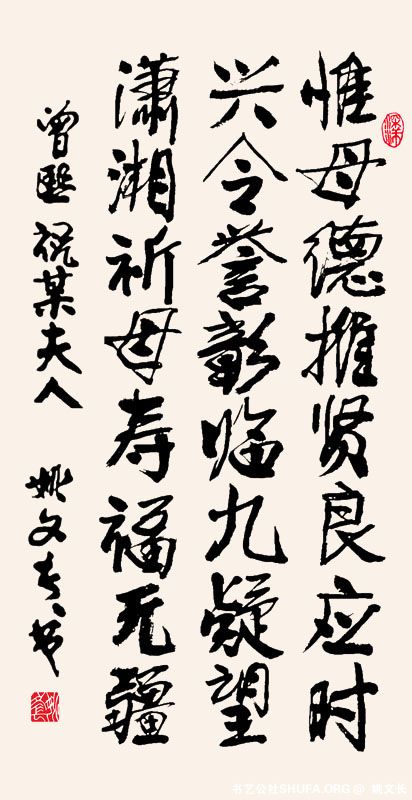 惟母德推贤良应时
兴令誉彰临九疑望
潇湘祈母寿福无疆
曾熙祝某夫人
姚文长书
书艺公社SHUFA.ORG@ 姚文长